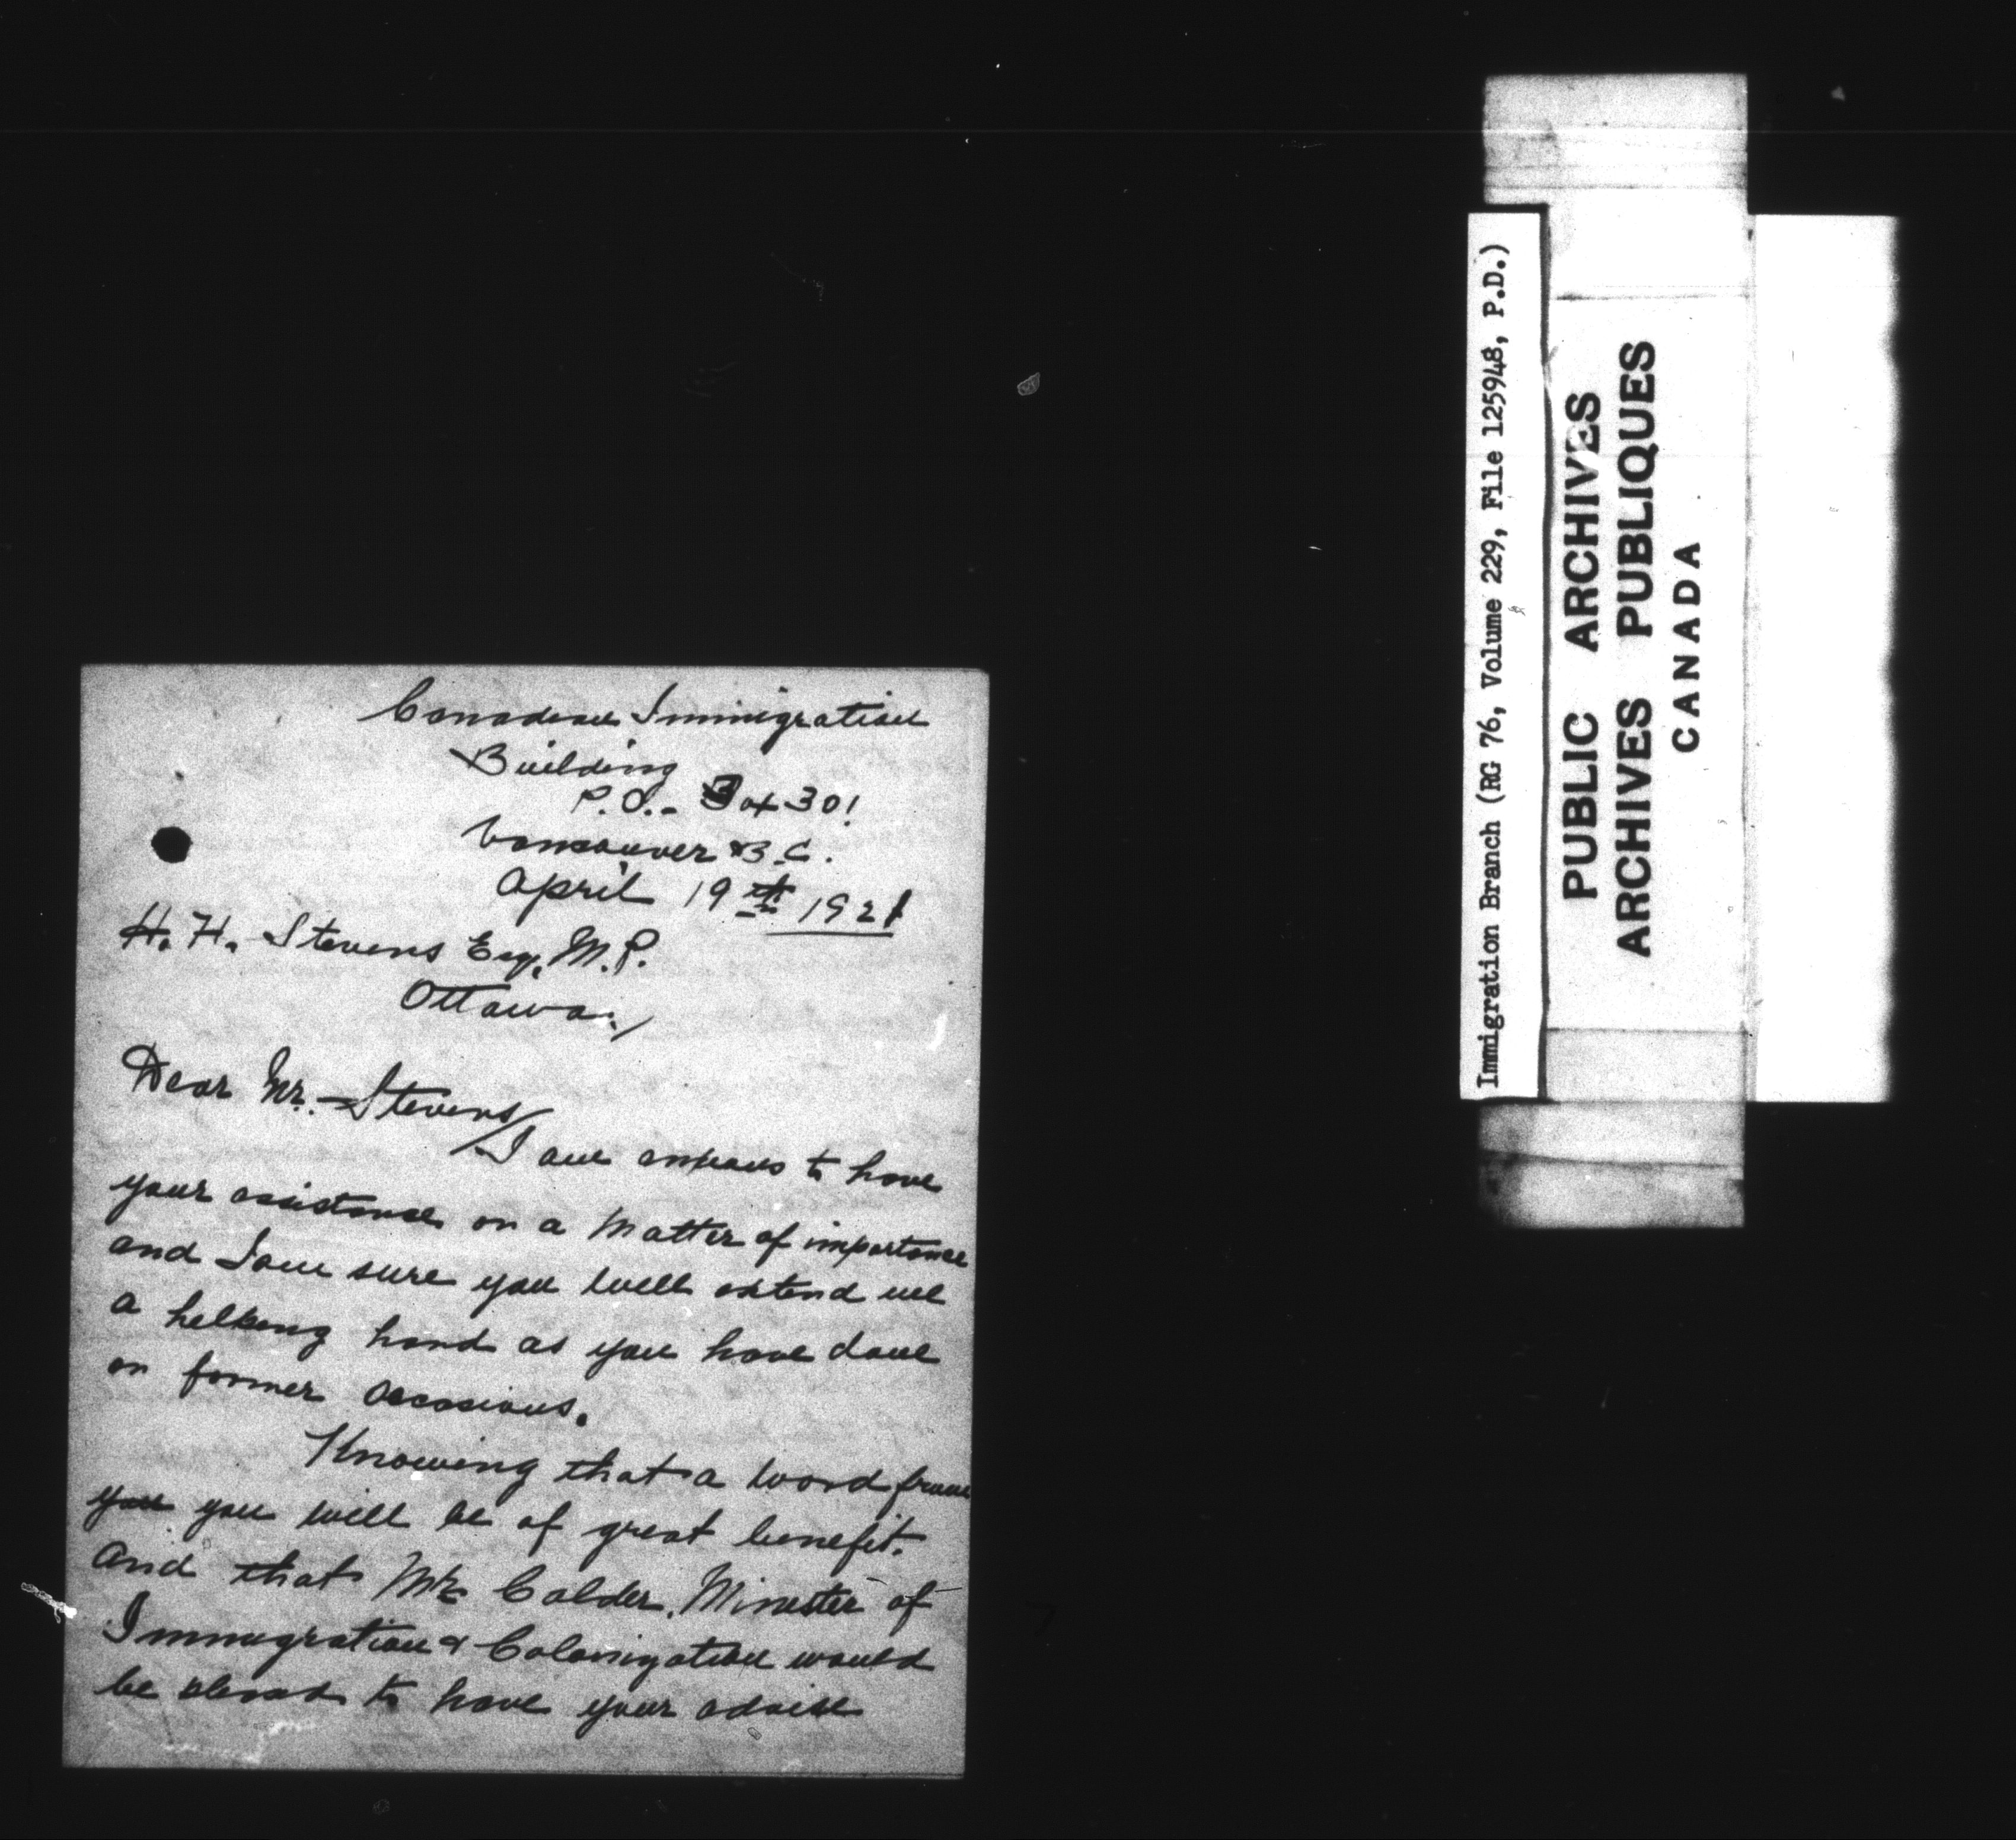 Canadian Immigration
Building
P.O. - Box 301
Vancouver B.C.
April 19th 1921
H. H. Stevens Esq. M.P.
Ottawa.
Dear Mr. Stevens/
I am anxious to have
your assistance on a Matter of importance
and I am sure you will extend me
a helping hand as you have done
on former occasions.
Knowing that a word from
you you will be of great benefit.
And that Mr Calder, Minister of
Immigration & Colonization would
be pleased to have your advise
Immigration Branch (RG 76, Volume 229, File 125948, P.D.)
PUBLIC ARCHIVES
ARCHIVES PUBLIQUES
CANADA